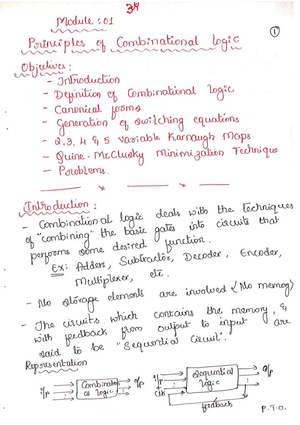 34
Module : 01
①
Principles of Combinational Logic
Objectives :
- Introduction
- Definition of Combinational logic
- Canonical forms
- Generation of switching equations
- 2,3, 4 & 5 Variable Karnaugh Maps
- Quine-McClusky Minimization Technique
- Problems.
Introduction :
- Combinational logic deals with the techniques
of "combining" the basic gates into circuits that
performs some desired function.
Ex: Adders, Subtractor, Decoder, Encoder,
Multiplexer, etc.
- No storage elements are involved (No memory)
- The circuits which contains the memory, &
with feedback from output to input are
said to be "Sequential Circuit".
Representation
i/p Combination al logic o/p
i/p clk Sequential logic o/p
feedback
P.T.O.